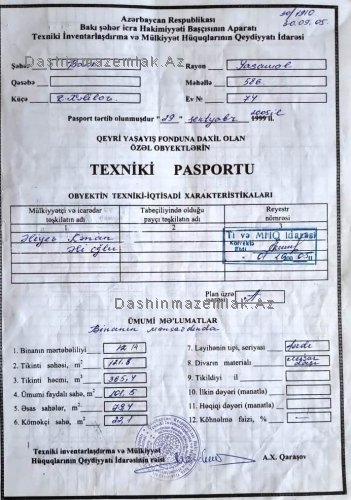 Azərbaycan Respublikası
Bakı şəhər icra Hakimiyyəti Başçısının Aparatı
Texniki İnventarlaşdırma və Mülkiyyət Hüquqlarının Qeydiyyatı İdarəsi
30.09.05.
Şəhər Bakı Rayon Yasamal
Dashinmazemlak.Az
Qəsəbə Məhəllə 586
Küçə Ev № 74
Pasport tərtib olunmuşdur "29" sentyabr 2005 il 1999 il.
QEYRI YAŞAYIŞ FONDUNA DAXİL OLAN
ÖZƏL OBYEKTLƏRİN
TEXNİKİ PASPORTU
OBYEKTİN TEXNİKİ-İQTİSADİ XARAKTERİSTİKALARI
Mülkiyyətçi və icarədar təşkilatın adı Tabeçiliyində olduğu payçı təşkilatın adı Reyestr nömrəsi
1 2 3
Əliyev Kənan
Əli oğlu
Ti və MHQ İdarəsi
Dashinmazemlak.Az
Plan üzrə A
ÜMUMİ MƏ'LUMATLAR
Binanın mansardında
1. Binanın mərtəbəliliyi 12 M
2. Tikinti sahəsi, m² 121.8
3. Tikinti həcmi, m³ 365,4
4. Ümumi faydalı sahə, m² 101.5
5. Əsas sahələr, m² 79,4
6. Köməkçi sahə, m² 22,1
7. Layihənin tipi, seriyası
8. Divarın materialı
9. Tikildiyi il
10. İlkin dəyəri (manatla)
11. Həqiqi dəyəri (manatla)
12. Köhnəlmə faizi, %
Dashinmazemlak.Az
Texniki inventarlaşdırma və Mülkiyyət
Hüquqlarının Qeydiyyatı İdarəsinin rəisi A.X. Qaraşov